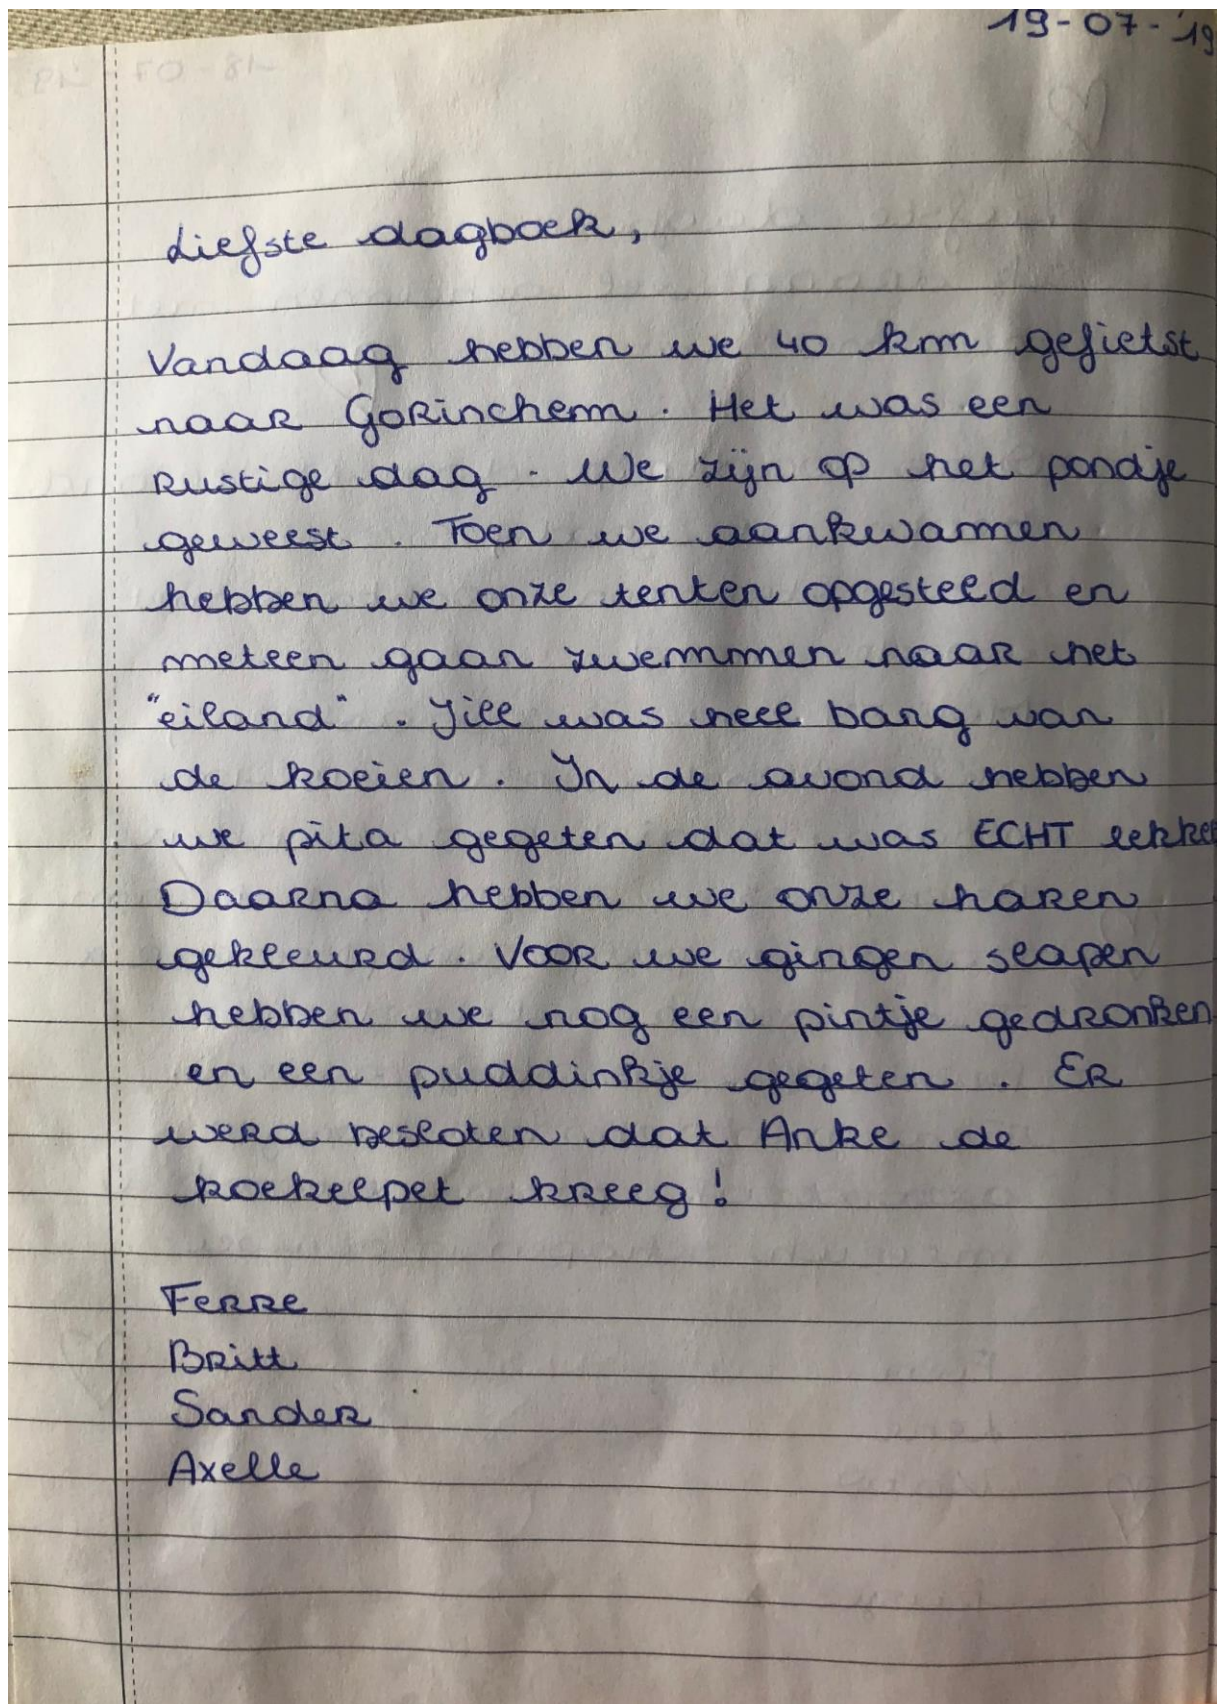 19-07-'19
Liefste dagboek,
Vandaag hebben we 40 km gefietst
naar Gorinchem. Het was een
rustige dag. We zijn op het pondje
geweest. Toen we aankwamen
hebben we onze tenten opgesteld en
meteen gaan zwemmen naar het
"eiland". Jill was heel bang van
de koeien. In de avond hebben
we pita gegeten dat was ECHT lekker
Daarna hebben we onze haren
gekleurd. Voor we gingen slapen
hebben we nog een pintje gedronken
en een puddinkje gegeten. Er
werd besloten dat Anke de
koekelpet kreeg!
Ferre
Britt
Sander
Axelle